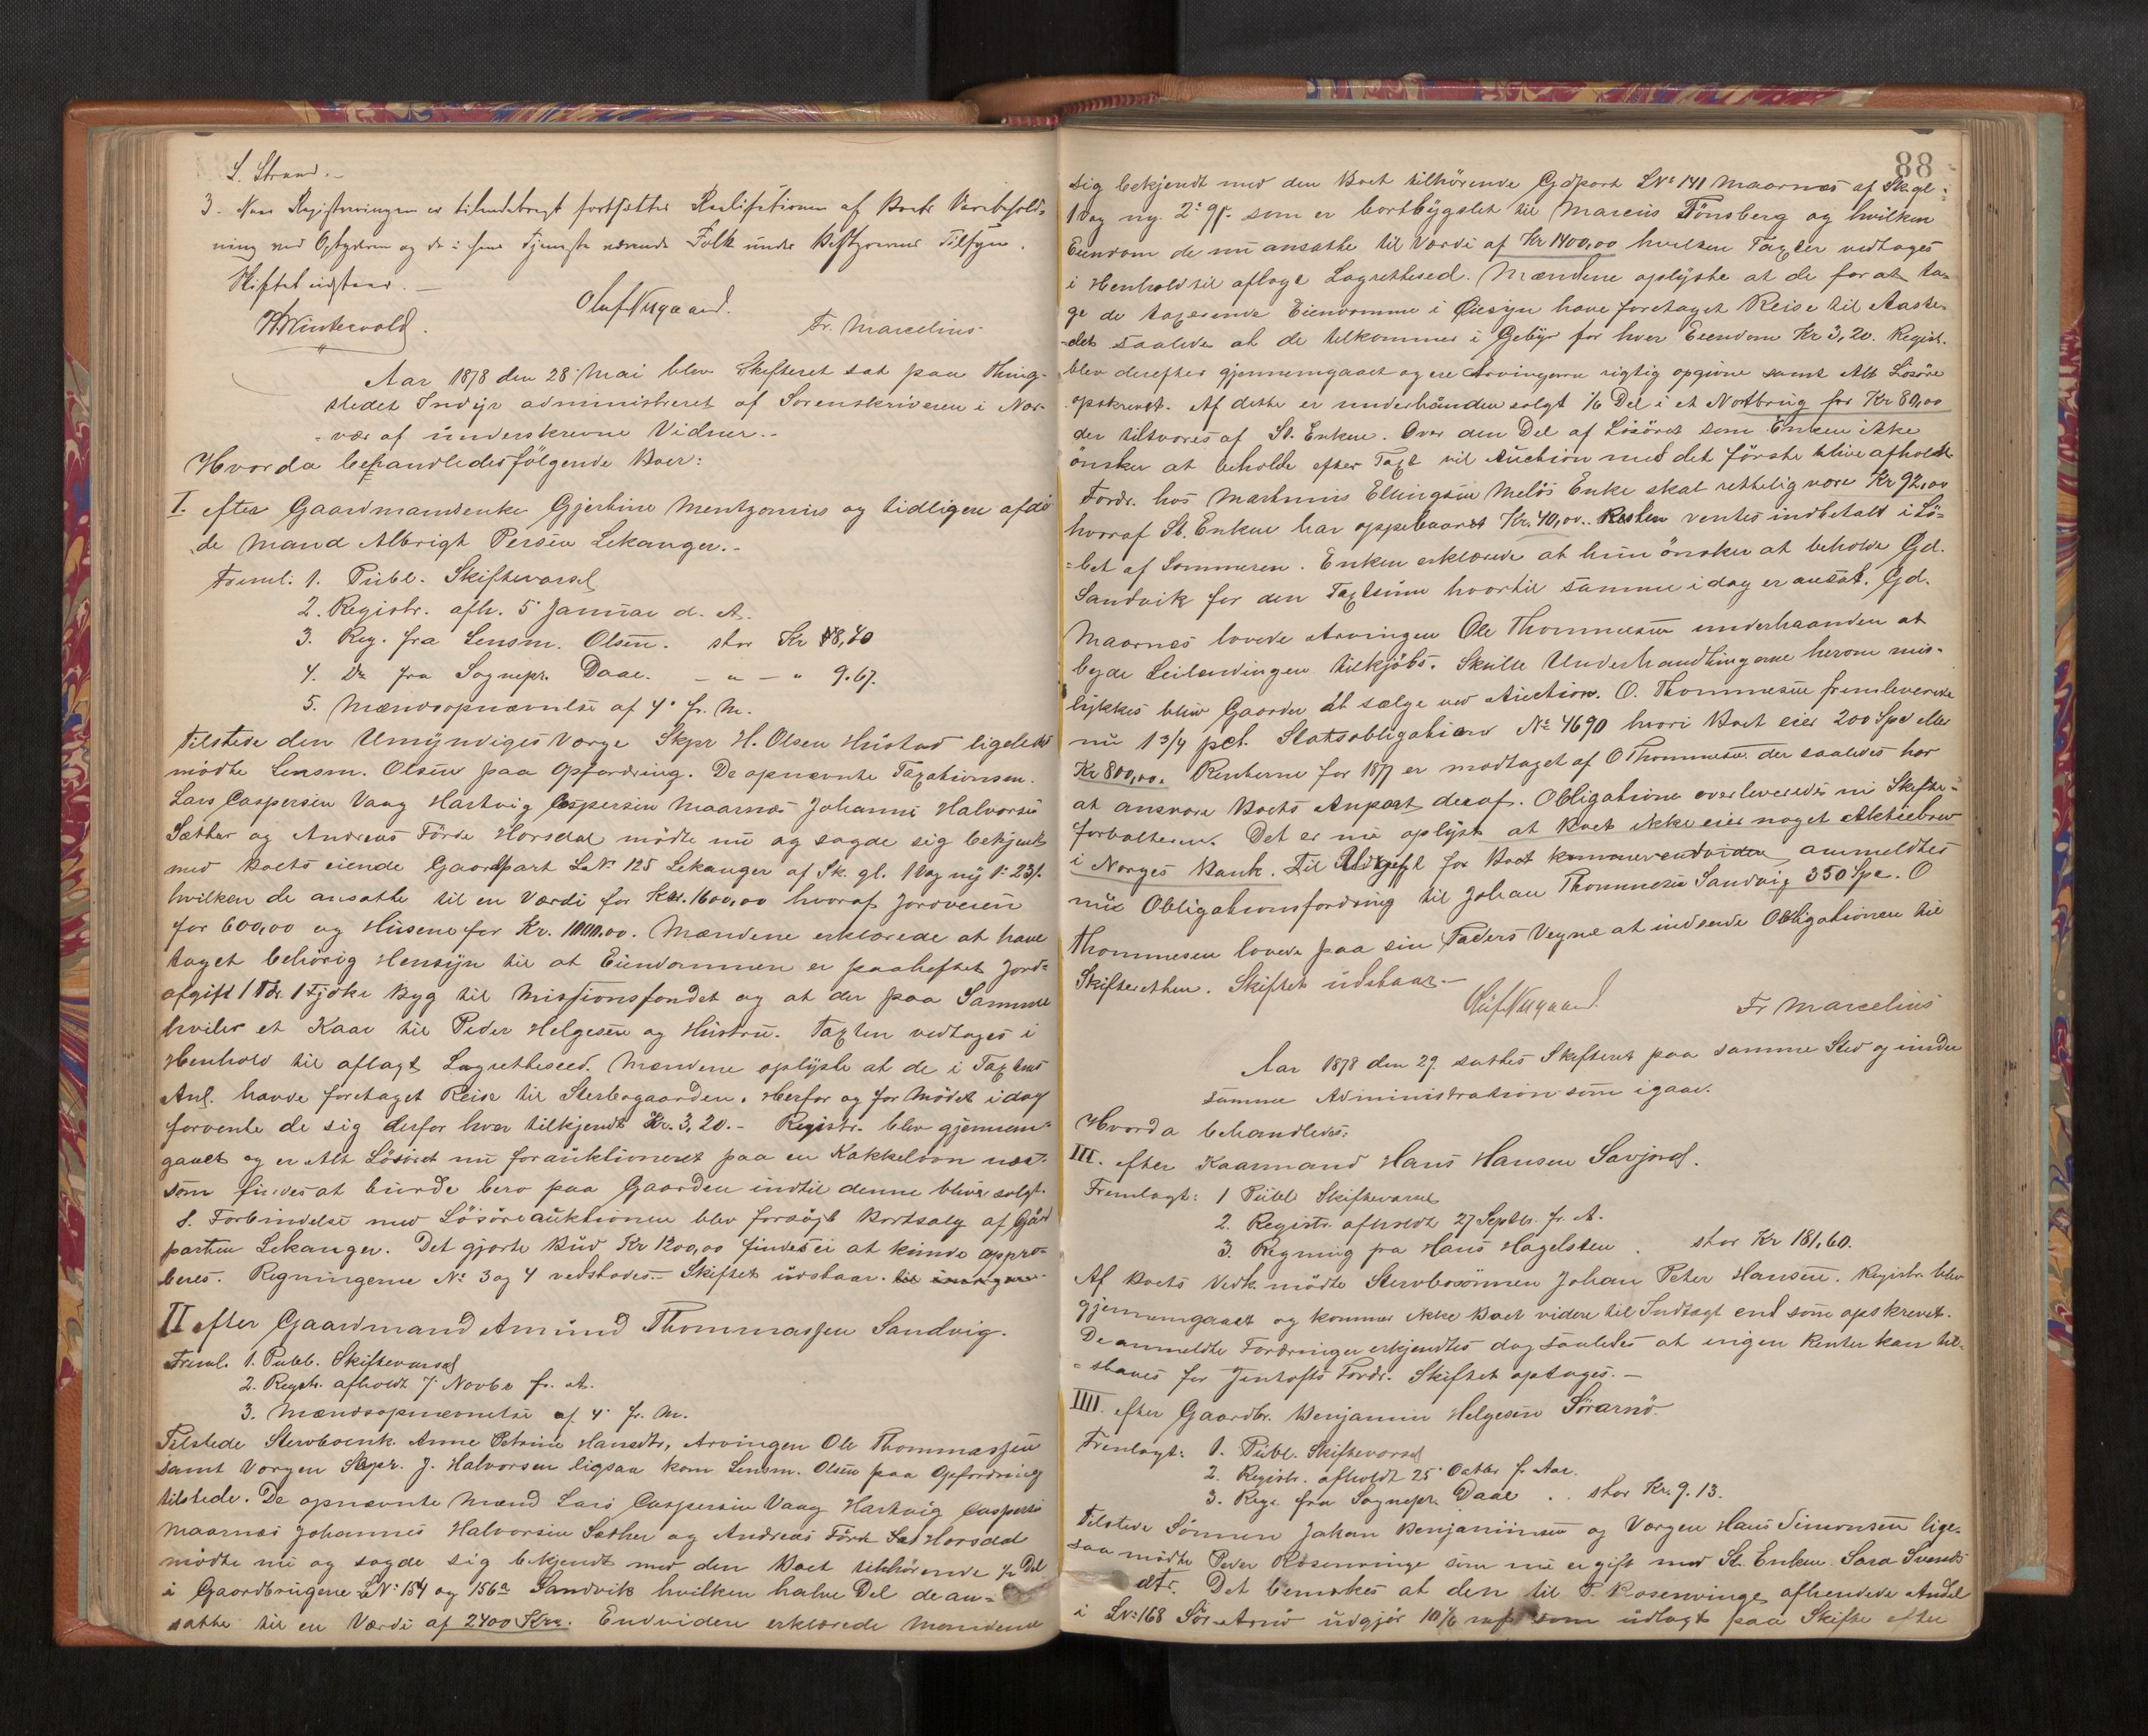 L. Strand.-
3. Naar Registreringen er tilendebragt fortsættes Realisationen af Boets Varebehold-
ning ved Opbyderen og de i hans Tjeneste værende Folk under Bestyrerens Tilsyn.
Skiftet udstaar.-
Winterwold. Oluf Nygaard. Fr. Marcelius
Aar 1878 den 28 Mai blev Skifteret sat paa Thing-
stedet Indyr administreret af Sorenskriveren i Nær-
vær af underskrevne Vidner.-
Hvorda behandledes følgende Boer:
I. efter Gaardmandsenke Gjertine Mentzonius og tidligere afdø
de Mand Albrigt Persen Lekanger.-
Freml: 1. Publ. Skiftevarsel
2. Registr. afh. 5 Januar d. A.
3. Reg. fra Lensm. Olsen. stor Kr 8,40
4. Do fra Sognepr. Daae. - " - " 9.67.
5. Mændsopnævnelse af 4' f. M.
Tilstede den Umyndiges Værge Skpr H. Olsen Hustad ligeledes
mødte Lensm. Olsen paa Opfordring. De opnævnte Taxationsm.
Lars Caspersen Vaag Hartvig Caspersen Maarnæs Johannes Halvorsen
Sæther og Andreas Førde Horsdal mødte nu og sagde sig bekjendt
med Boets eiende Gaardpart LNo 125 Lekanger af Sk. gl. 1 Vog ny 1: 23/.
hvilken de ansatte til en Værdi for Kr. 1600,00 hvoraf Jordveien
for 600,00 og Husene for Kr. 1000.00. Mændene erklærede at have
taget behørig Hensyn til at Eiendommen er paaheftet Jord-
afgift 1 Tdr. 1 Fjdke Byg til Missionsfondet og at der paa Samme
hviler et Kaar til Peder Helgesen og Hustru. Taxten vedtages i
Henhold til aflagt Lagretteseed. Mændene oplyste at de i Taxtens
Anl. havde foretaget Reise til Sterbogaarden. Herfor og for Mødet idag
forvente de sig derfor hver tilkjendt Kr. 3,20.- Registr. blev gjennem-
gaaet og er Alt Løsøret nu forauktioneret paa en Kakkelovn nær
som findes at burde bero paa Gaarden indtil denne bliver solgt.
I Forbindelse med Løsøreauktionen blev forsøgt Bortsalg af Gård
parten Lekanger. Det gjorte Bud Kr 1200,00 findes ei at kunde appro-
beres. Regningerne No 3 og 4 vedtoges.- Skiftet udstaar.
II efter Gaardmand Amund Thommassen Sandvig.
Freml. 1. Publ. Skiftevarsel
2. Registr. afholdt 7 Novbr f. A.
3. Mændsopnævnelse af 4' f. M.
Tilstede Stervboenk. Anne Petrine Hansdtr, Arvingen Ole Thommassen
samt Værgen Skpr. J. Halvorsen ligsaa kom Lensm. Olsen paa Opfordring
tilstede. De opnævnte Mænd Lars Caspersen Vaag Hartvig Caspersen
Maarnæs Johannes Halvorsen Sæther og Andreas Førde Horsdal
mødte nu og sagde sig bekjendt med den Boet tilhørende 1/2 Del
i Gaardbrugene LNo 154 og 156a Sandvik hvilken halve Del de an-
satte til en Værdi af 2400 Kr. Endvidere erklærede Mændene
88
sig bekjendt med den Boet tilhørende Gdpart LNo 141 Maarnæs af Sk. gl:
1 Vog ny. 2: 9/. som er bortbygslet til Marcus Tönsberg og hvilken
Eiendom de nu ansatte til Værdi af Kr 1400,00 hvilken Taxter vedtages
i Henhold til aflagt Lagretteseed. Mændene oplyste at de for at ta-
ge de taxerende Eiendomme i Øiesyn have foretaget Reise til Aaste-
det saaledes at de tilkommer i Gebyr for hver Eiendom Kr 3,20. Registr.
blev derefter gjennemgaaet og ere Arvingerne rigtig opgivne samt Alt Løsøre
opskrevet. Af dette er underhånden solgt 1/6 Del i et Notbrug for Kr 80,00
der tilsvares af St. Enken. Over den Del af Løsöret som Enken ikke
önsker at beholde efter Taxt vil Auction med det förste blive afholdt.
Fordr. hos Martinus Ellingsen Meløs Enke skal rettelig være Kr 92,00
hvoraf St. Enken har oppebaaret Kr. 40,00. Resten ventes indbetalt i Lö-
bet af Sommeren. Enken erklærede at hun önsker at beholde Gd.
Sandvik for den Taxtsum hvortil samme idag er ansat. Gd.
Maarnæs lovede Arvingen Ole Thommesen underhaanden at
byde Leilændingen tilkjöbs. Skulle Underhandlingerne herom mis-
lykkes bliver Gaarden at sælge ved Auction. O. Thommesen fremleverede
nu 1 3/4 pct. Statsobligation No 4690 hvori Boet eier 200 Spd eller
Kr 800,00. Renterne for 1877 er modtaget af O Thommesen der saaledes har
at ansvare Boets Anpart deraf. Obligationen overleveredes nu Skifte-
forvalteren. Det er nu oplyst at Boet ikke eier noget Aktiebrev
i Norges Bank. Til Udgift for Boet kommer endvidere anmeldtes
nu Obligationsfordring til Johan Thommesen Sandvig 350 Spe. O
Thommesen lovede paa sin Faders Vegne at indsende Obligationen til
Skifteretten. Skiftet udstaar.-
Oluf Nygaard. Fr Marcelius
Aar 1878 den 29. sattes Skifteret paa samme Sted og under
samme Administration som igaar.
Hvorda behandledes:
III. efter Kaarmand Hans Hansen Savjord.
Fremlagt: 1 Publ Skiftevarsel
2. Registr. afholdt 27 Septbr. f. A.
3. Regning fra Hans Hagelsteen . stor Kr 181,60.
Af Boets Vedk. mödte Stervbosönnen Johan Peter Hansen. Registr. blev
gjennemgaaet og kommer ikke Boet videre til Indtægt end som opskrevet.
De anmeldte Fordringer erkjendtes dog saaledes at ingen Renter kan til-
staaes for Jentofts Fordr. Skiftet optages.-
IIII. efter Gaardbr. Benjamin Helgesen Sörarnö.
Fremlagt: 1. Publ. Skiftevarsel
2. Registr. afholdt 25' Octbr f. Aar.
3. Regn. fra Sognepr. Daae . . stor Kr. 9.13.
Tilstede Sönnen Johan Benjaminsen og Værgen Hans Simonsen lige-
saa mödte Peder Rosenvinge som nu er gift med St. Enken Sara Svends
dtr. Det bemærkes at den til P. Rosenvinge afhendede Andel
i LNo 168 Sör Arnö udgjör 10 1/6 som udlagt paa Skifte efter